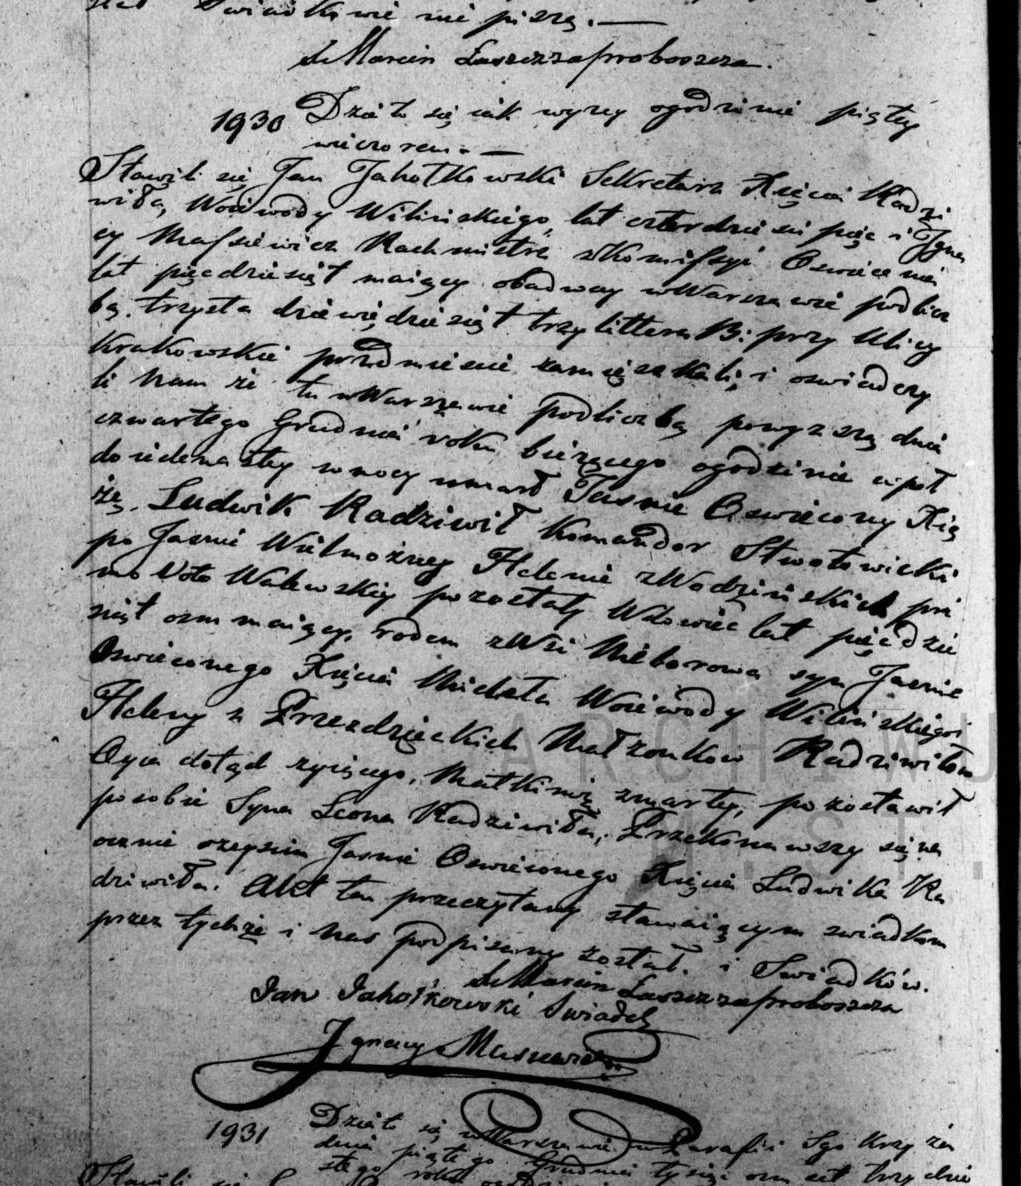 Swiadkowie nie piszą. —
X Marcin Łaszcz za proboszcza.
1930 Działo się iak wyżey o godzinie piątey
wieczorem. —
Stawili się Jan Jahołkowski Sekretarz Xięcia Radzi
wiła, Woiewody Wilińskiego, lat czterdzieści pięc i Igna
cy Massiewicz Rachmistrz w Komissyi Oswiecenia
lat pięcdziesiąt maiący obadway w Warszawie pod licz
bą trzysta dziewiędziesiąt trzy littera B: przy Ulicy
Krakowskie przedmiescie zamięszkali, i oswiadczy
li nam że tu w Warszawie pod liczbą powyższą dnia
czwartego Grudnia roku bieżącego o godzinie w poł
do iedenastey w nocy umarł Jasnie Oswiecony Xią
żę, Ludwik Radziwił Komandor Stwołowicki
po Jasnie Wielmożney Helenie z Wodzińskich pri
mo Voto Walewskiey pozostały Wdowiec lat pięcdzie
siąt osm maiący, rodem z Wsi Nieborowa syn Jasnie
Oswieconego Xięcia Michała Woiewody Wilińskiego i
Heleny z Przezdzieckich Małżonków Radziwiłów
Oyca dotąd zyiącego, Matki iuż zmarłey, pozostawił
po sobie Syna Leona Radziwiła, Przekonawszy się na
ocznie o zeysciu Jasnie Oswieconego Xięcia Ludwika Ra
dziwiła. Akt ten przeczytany stawaiącym swiadkom
przez tychże i Nas podpisany został. i Swiadków.
X Marcin Łaszcz za proboszcza
Jan Jahołkowski Swiadek
Ignacy Massiewicz
1931 Działo się w Warszawie w Parafii Sgo Krzyża
dnia piątego Grudnia tysiąc osmset trzydzie
stego roku
Stawili się
ARCHIWU
M.ST.